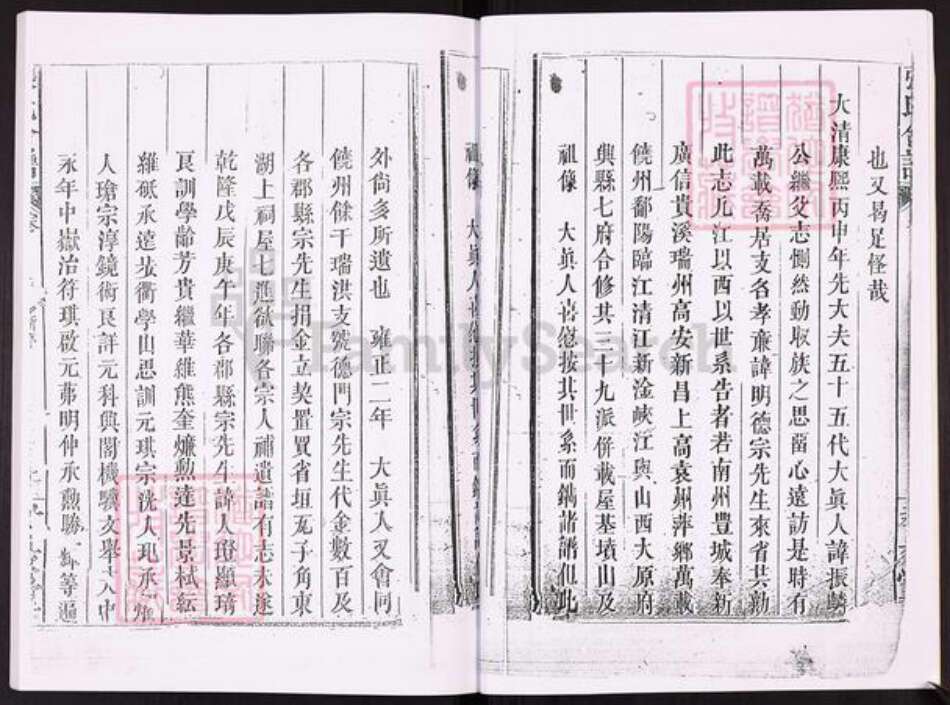 也又曷足怪哉
大清康熙丙申年先大夫五十五代大眞人諱振麟
公繼父志惻然動收族之思畱心遠訪是時有
萬載喬居支名孝亷諱明德宗先生來省共勷
此志凡江以西以世系告者若南州豐城奉新
廣信貴溪瑞州高安新昌上高袁州萍鄉萬載
饒州鄱陽臨江清江新淦峽江與山西大原府
興縣七府合修其三十九派併載屋基墳山及
祖像 大眞人喜慰按其世系而鐫諸譜但此
外尙多所遺也 雍正二年 大眞人又會同
饒州餘干瑞洪支號德門宗先生代金數百及
各郡縣宗先生捐金立契置買省垣瓦子角東
湖上祠屋七進欲聯各宗人補遺譜有志未遂
乾隆戊辰庚午年各郡縣宗先生諱人瑠顯琦
良訓學齡芳貴繼華維熊奎爌勲達先景栻紜
維砥承遠 衢學山思訓元琪宗洸人玑承
人瑲宗淳鏡術良詳元科興閣機驥文舉 人中
永年中嶽治符琪啟元茀明仲承勲勝 等遍
FamilySearch